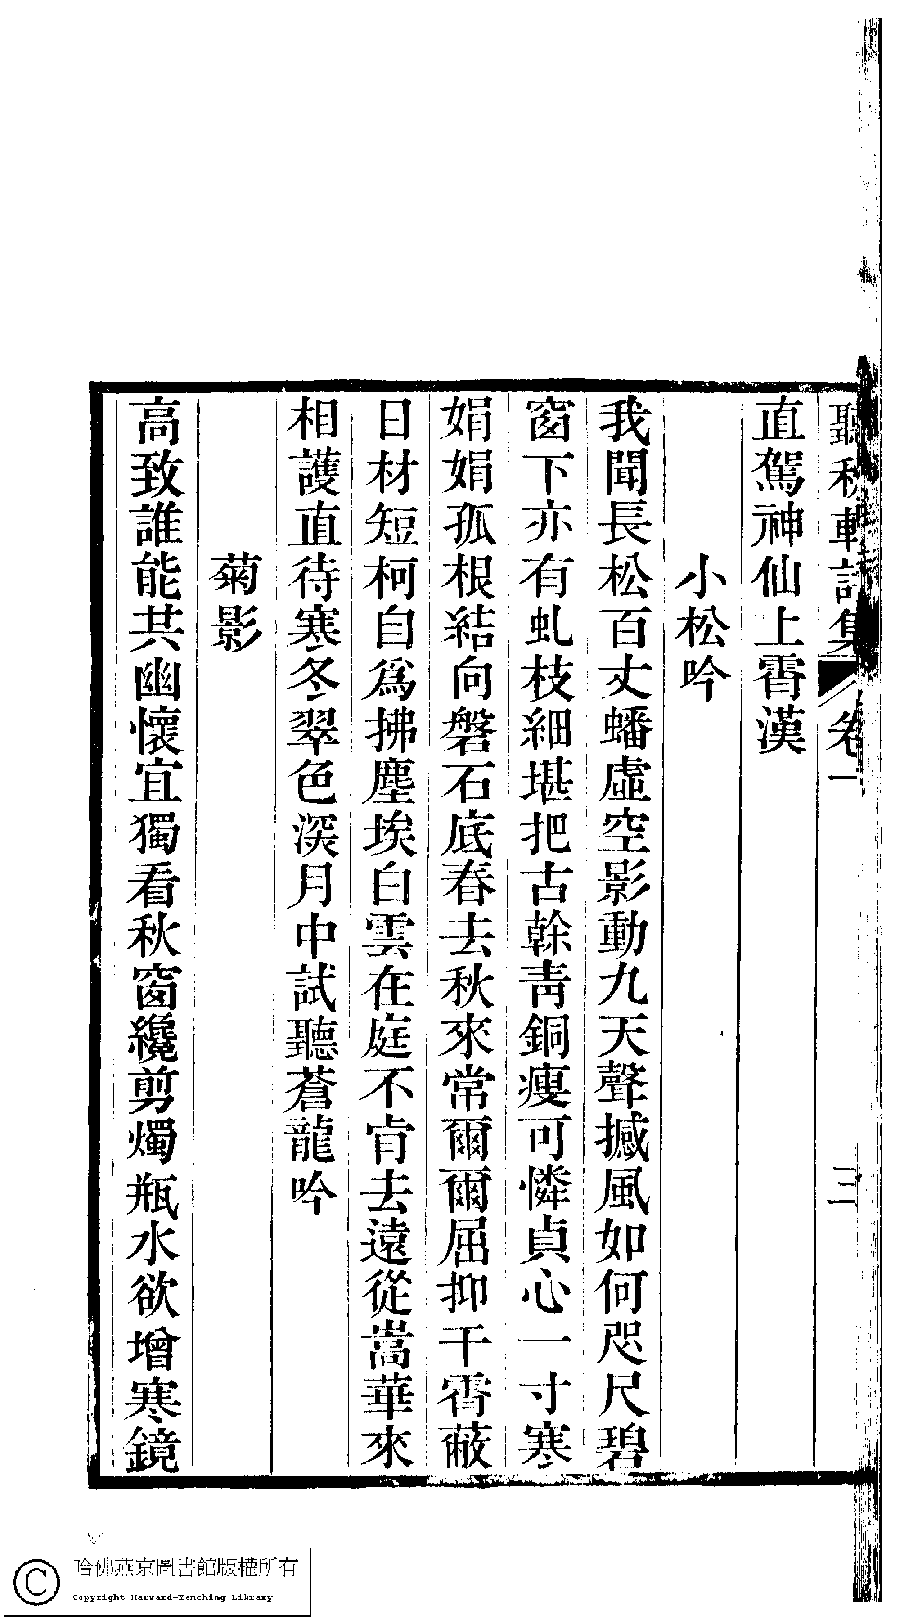 聽秋軒詩集 卷一 三
直駕神仙上霄漢
小松吟
我聞長松百丈蟠虛空影動九天聲撼風如何咫尺碧
窗下亦有虬枝細堪把古榦靑銅瘦可憐貞心一寸寒
娟娟孤根結向磐石底春去秋來常爾爾屈抑干霄蔽
日材短柯自爲拂塵埃白雲在庭不肯去遠從嵩華來
相護直待寒冬翠色深月中試聽蒼龍吟
菊影
高致誰能共幽懷宜獨看秋窗纔剪燭瓶水欲增寒鏡
哈佛燕京圖書館版權所有
Copyright Harvard-Yenching Library